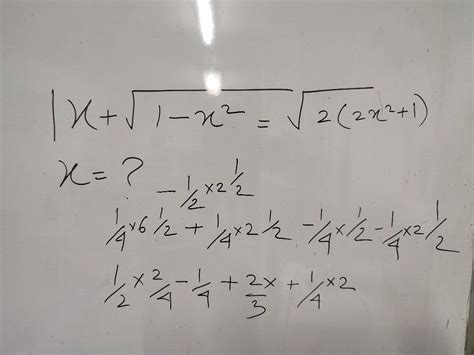 |x + √1 - x² = √2(2x²+1)
x = ?
- 1/2 × 2 1/2
1/4 × 6 1/2 + 1/4 × 2 1/2 - 1/4 × 1/2 - 1/4 × 2 1/2
1/2 × 2/4 - 1/4 + 2x/3 + 1/4 × 2